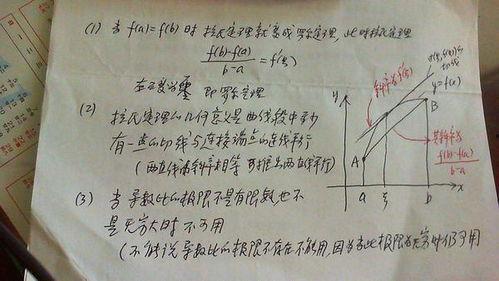 (1) 当 f(a)=f(b) 时 拉氏定理就变成罗尔定理, 此时拉氏定理
f(b)-f(a)
b-a
= f'(ξ)
左边变为零 即罗尔定理
(2) 拉氏定理的几何意义是曲线段中至少
有一点的切线与连接端点的连线平行
(两直线斜率相等 可推出两直线平行)
(3) 当导数比的极限不是有限数也不
是无穷大时 不可用
(不能说导数比的极限不存在不能用, 因为当此极限为无穷时仍可用
y
斜率为f'(ξ)
y=f(x)
B
A
其斜率为
f(b)-f(a)
b-a
a
ξ
b
x